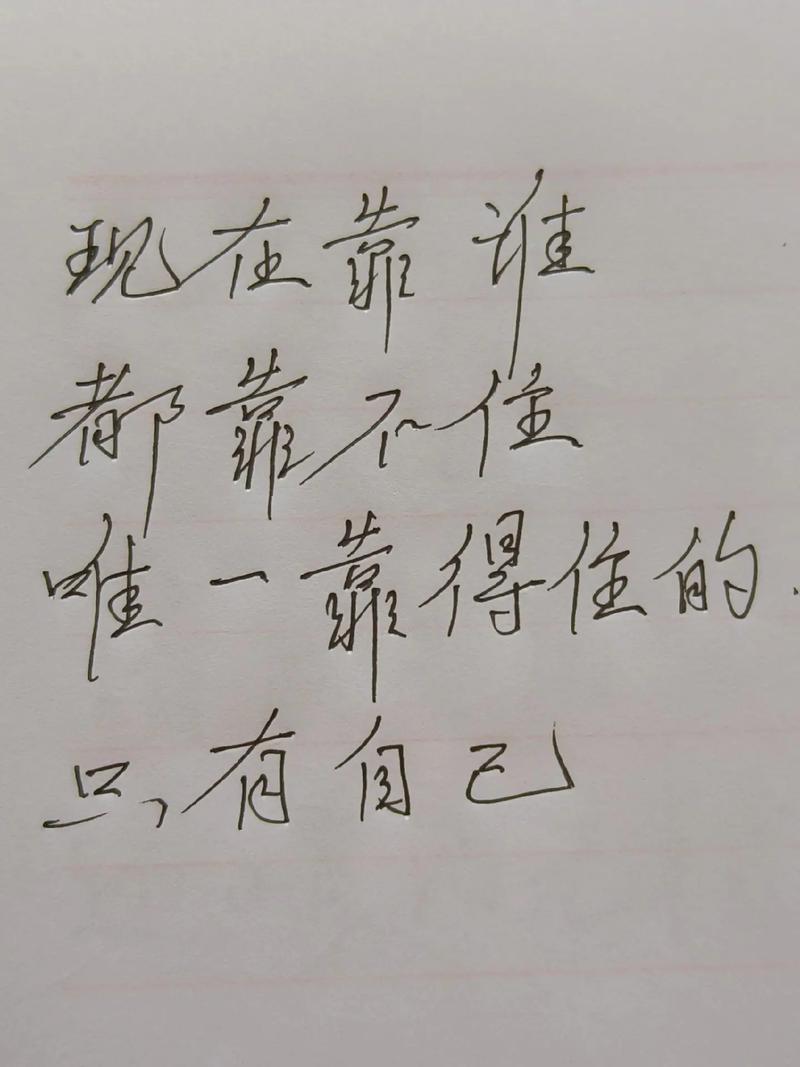 现在靠谁
都靠不住
唯一靠得住的
只有自己